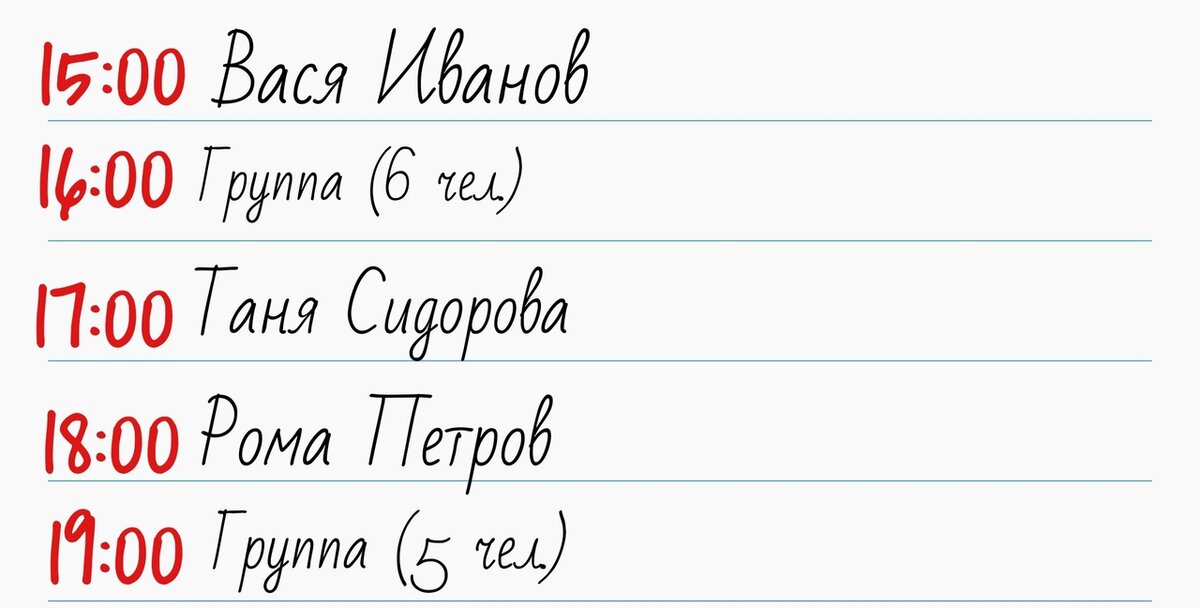 15:00 Вася Иванов
16:00 Группа (6 чел.)
17:00 Таня Сидорова
18:00 Рома Петров
19:00 Группа (5 чел.)